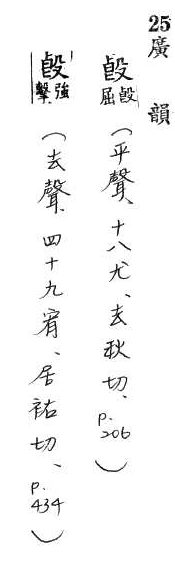 25 廣韻
𣪘 𣪘屈 (平聲、十八尤、去秋切、p.206)
𣪘 強擊 (去聲、四十九宥、居祐切、p.434)